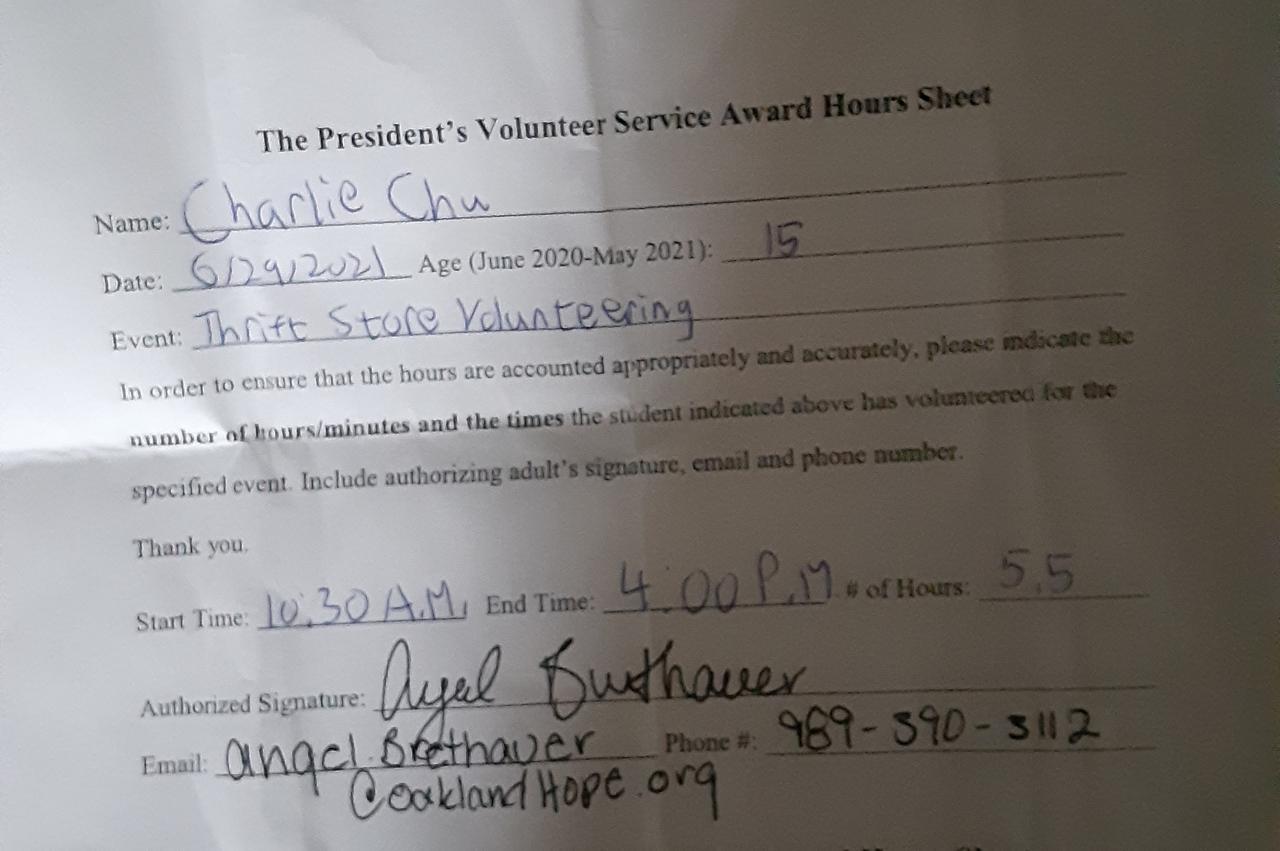 The President's Volunteer Service Award Hours Sheet
Name: Charlie Chu
Date: 6/29/2021 Age (June 2020-May 2021): 15
Event: Thrift Store Volunteering
In order to ensure that the hours are accounted appropriately and accurately, please indicate the
number of hours/minutes and the times the student indicated above has volunteered for the
specified event. Include authorizing adult's signature, email and phone number.
Thank you.
Start Time: 10:30 A.M. End Time: 4:00 P.M # of Hours: 5.5
Authorized Signature: Angel Brethauer
Email: angel.Brethauer Phone #: 989-390-3112
@oaklandHope.org